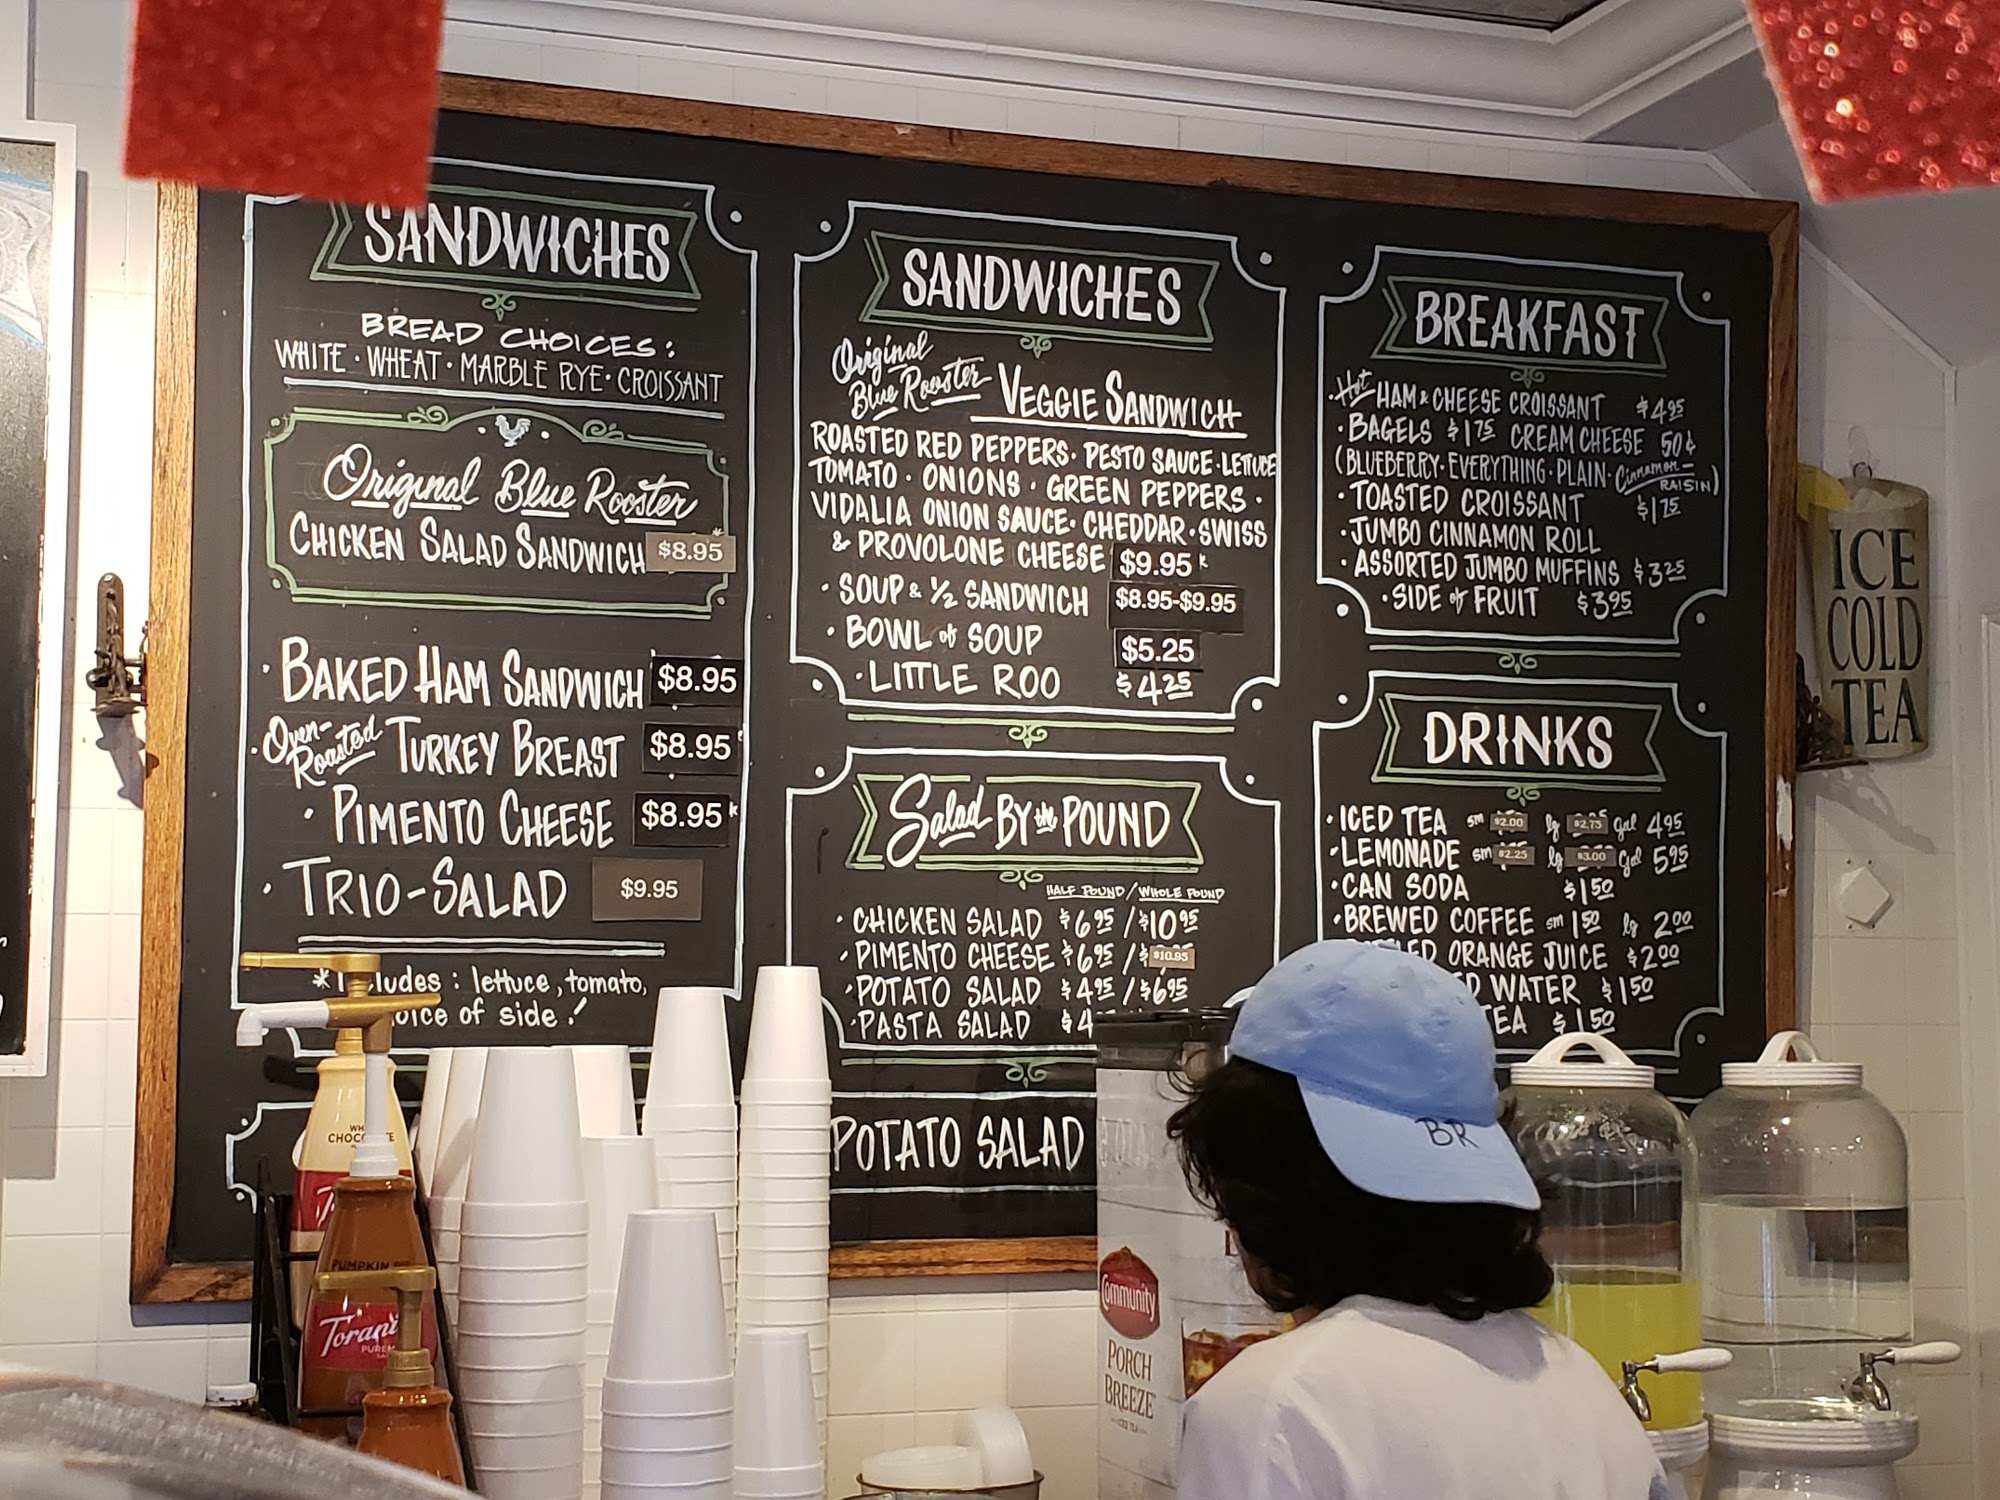 SANDWICHES
BREAD CHOICES:
WHITE · WHEAT · MARBLE RYE · CROISSANT
Original Blue Rooster
CHICKEN SALAD SANDWICH $8.95
· BAKED HAM SANDWICH $8.95
· Oven-Roasted TURKEY BREAST $8.95
· PIMENTO CHEESE $8.95
· TRIO-SALAD $9.95
lettuce, tomato,
of side!
SANDWICHES
Original Blue Rooster VEGGIE SANDWICH
ROASTED RED PEPPERS · PESTO SAUCE · LETTUCE
TOMATO · ONIONS · GREEN PEPPERS ·
VIDALIA ONION SAUCE · CHEDDAR · SWISS
& PROVOLONE CHEESE $9.95
· SOUP & ½ SANDWICH $8.95-$9.95
· BOWL of SOUP $5.25
· LITTLE ROO $4.25
Salad BY the POUND
HALF POUND / WHOLE POUND
· CHICKEN SALAD $6.95 / $10.95
· PIMENTO CHEESE $6.95 / $10.95
· POTATO SALAD $4.95 / $6.95
· PASTA SALAD
POTATO SALAD
BREAKFAST
· Hot HAM & CHEESE CROISSANT $4.95
· BAGELS $1.75 CREAM CHEESE 50¢
(BLUEBERRY · EVERYTHING · PLAIN · Cinnamon-RAISIN)
· TOASTED CROISSANT $1.75
· JUMBO CINNAMON ROLL
· ASSORTED JUMBO MUFFINS $3.25
· SIDE of FRUIT $3.95
DRINKS
· ICED TEA sm $2.00 lg $2.75 gal 4.95
· LEMONADE sm $2.25 lg $3.00 Gal 5.95
· CAN SODA $1.50
· BREWED COFFEE sm 1.50 lg 2.00
ORANGE JUICE $2.00
WATER $1.50
TEA $1.50
ICE
COLD
TEA
BR
Community
PORCH
BREEZE
PUMPKIN PIE
Torani